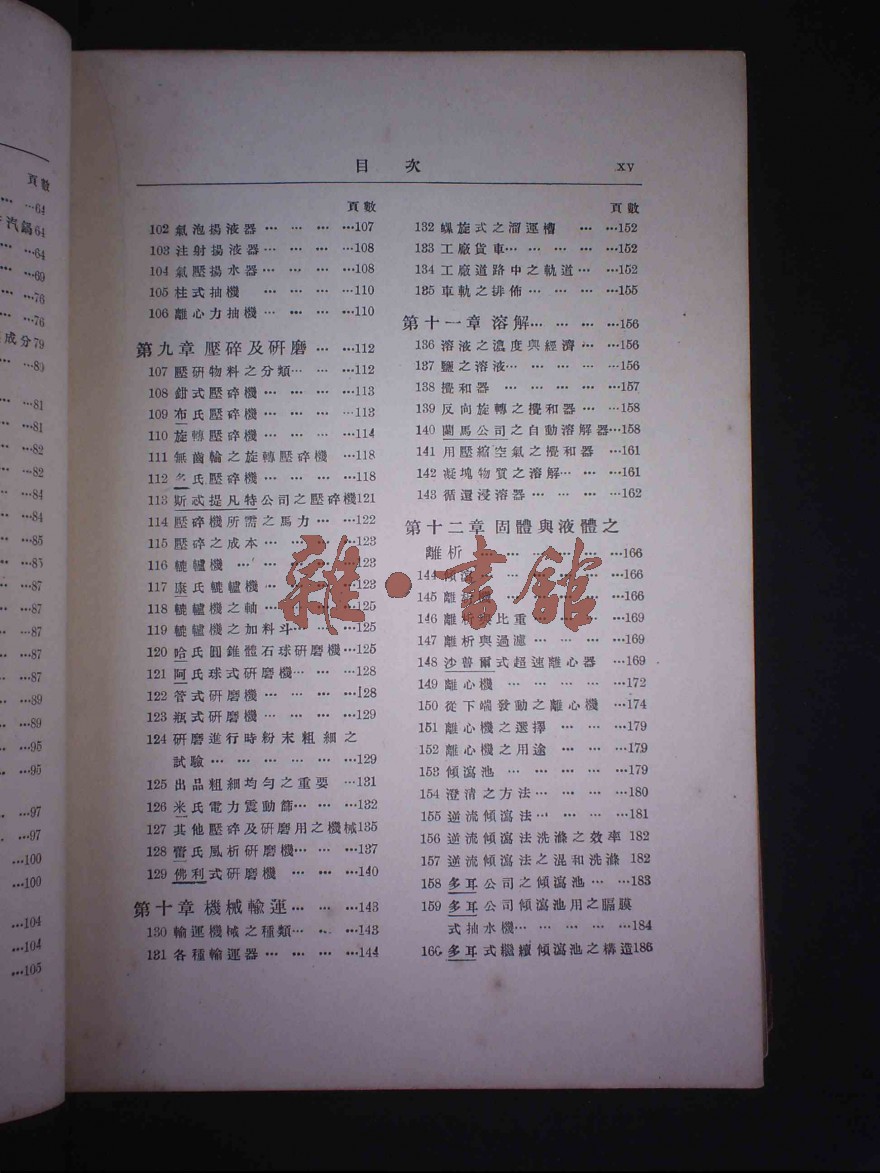 目 次 xv
頁數
102 氣泡揚液器 … … … …107
103 注射揚液器… … … …108
104 氣壓揚水器… … … …108
105 柱式抽機 … … … …110
106 離心力抽機… … … …110
第九章 壓碎及研磨 … …112
107 壓研物料之分類… … …112
108 鉗式壓碎機… … … …113
109 布氏壓碎機… … … …113
110 旋轉壓碎機 … … … …114
111 無齒輪之旋轉壓碎機 …118
112 名氏壓碎機… … … …118
113 斯忒提凡特公司之壓碎機121
114 壓碎機所需之馬力… …122
115 壓碎之成本… … … …123
116 轆轤機 … … … …123
117 康氏轆轤機… … … …123
118 轆轤機之軸… … … …125
119 轆轤機之加料斗… … …125
120 哈氏圓錐體石球研磨機…125
121 阿氏球式研磨機… … …128
122 管式研磨機 … … … …128
123 瓶式研磨機 … … … …129
124 研磨進行時粉末粗細之
試驗… … … … …129
125 出品粗細均勻之重要 …131
126 米氏電力震動篩… … …132
127 其他壓碎及研磨用之機械135
128 雷氏風析研磨機… … …137
129 佛利式研磨機 … … …140
第十章 機械輸運… … …143
130 輸運機械之種類… … …143
131 各種輸運器 … … … …144
頁數
132 螺旋式之溜運槽 … …152
133 工廠貨車… … … … …152
134 工廠道路中之軌道… …152
135 車軌之排佈… … … …155
第十一章 溶解… … … …156
136 溶液之濃度與經濟… …156
137 鹽之溶液… … … … …156
138 攪和器 … … … … …157
139 反向旋轉之攪和器… …158
140 蘭馬公司之自動溶解器…158
141 用壓縮空氣之攪和器 …161
142 凝塊物質之溶解… … …161
143 循還浸溶器… … … …162
第十二章 固體與液體之
離析 … … … … … …166
144 傾瀉… … … … … …166
145 離 … … … … …166
146 離析與比重… … … …169
147 離析與過濾… … … …169
148 沙普爾式超速離心器 …169
149 離心機… … … … …172
150 從下端發動之離心機 …174
151 離心機之選擇… … …179
152 離心機之用途 … … …179
153 傾瀉池 … … … … …179
154 澄清之方法… … … …180
155 逆流傾瀉法… … … …181
156 逆流傾瀉法洗滌之效率 182
157 逆流傾瀉法之混和洗滌 182
158 多耳公司之傾瀉池… …183
159 多耳公司傾瀉池用之膈膜
式抽水機… … … … …184
160 多耳式繼續傾瀉池之構造186
頁數
… …64
汽鍋64
…64
…69
…76
…76
成分79
…80
…81
…81
…82
…82
…84
…84
…85
…87
…87
…87
…89
…89
…95
…95
…97
…97
…100
…100
…104
…104
…105
雜·書館